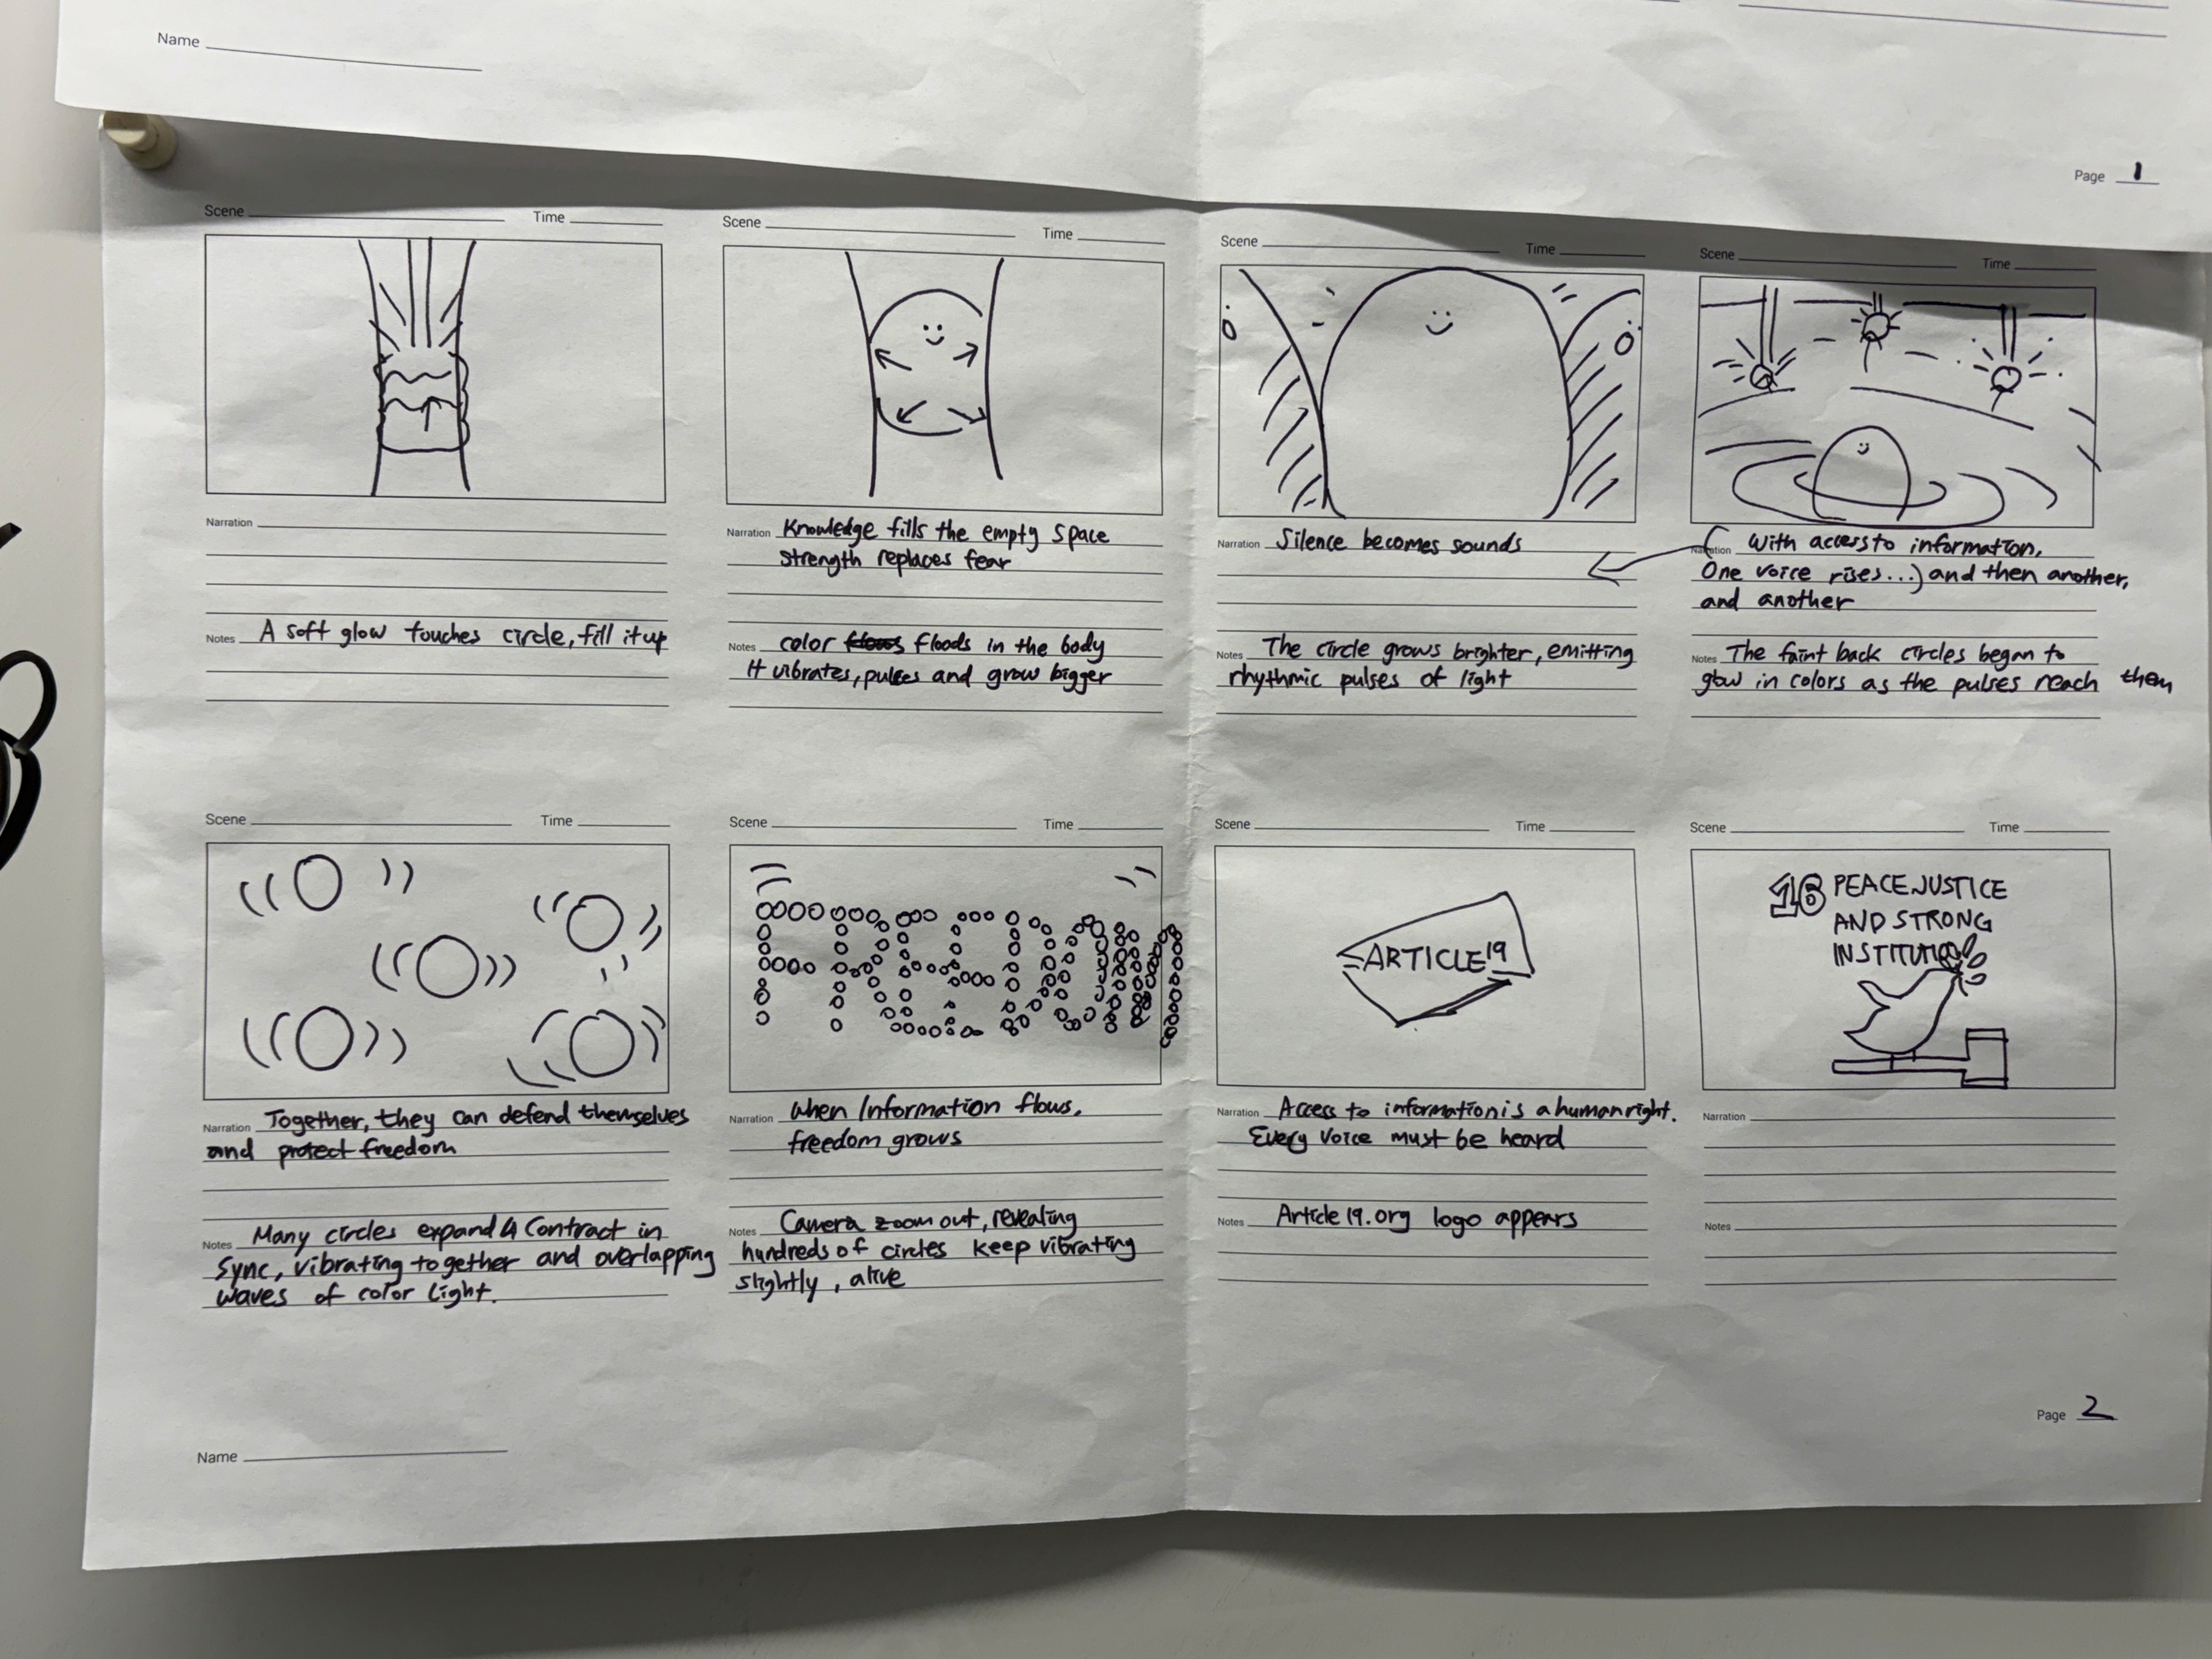 Name
Page 1
Scene Time
Narration
Notes A soft glow touches circle, fill it up
Scene Time
Narration Knowledge fills the empty space
strength replaces fear
Notes color flows floods in the body
It vibrates, pulses and grow bigger
Scene Time
Narration Silence becomes sounds
Notes The circle grows brighter, emitting
rhythmic pulses of light
Scene Time
Narration (With access to information,
One voice rises...) and then another,
and another
Notes The faint back circles began to
glow in colors as the pulses reach them
Scene Time
Narration Together, they can defend themselves
and protect freedom
Notes Many circles expand & Contract in
Sync, vibrating together and overlapping
waves of color light.
Scene Time
FREEDOM
Narration when Information flows,
freedom grows
Notes Camera zoom out, revealing
hundreds of circles keep vibrating
slightly, alive
Scene Time
ARTICLE 19
Narration Access to information is a human right.
Every Voice must be heard
Notes Article 19.org logo appears
Scene Time
16 PEACE JUSTICE
AND STRONG
Narration
Notes
Page 2
Name